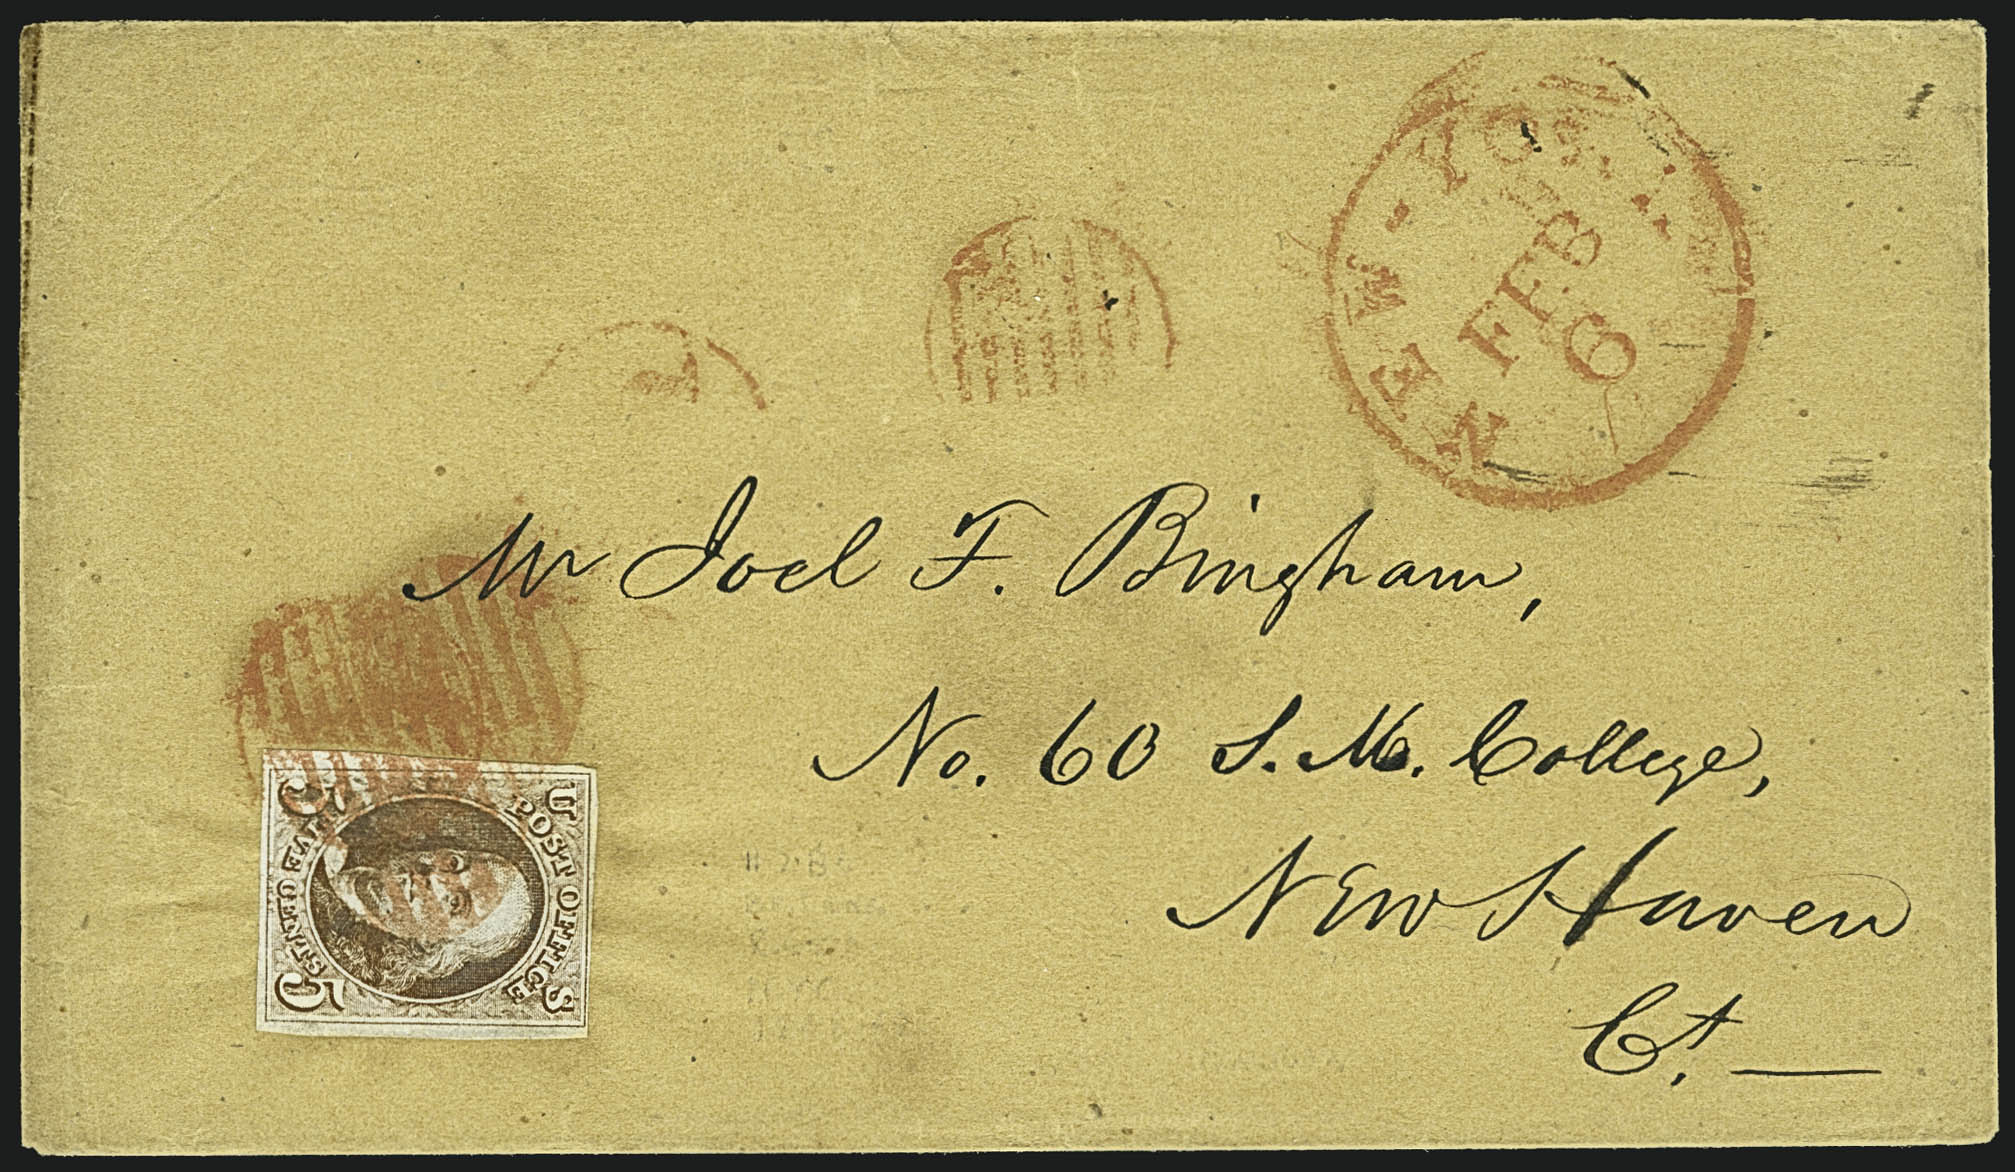 NEW-YORK
FEB
6
Mr Joel F. Bingham,
No. 60 S. M. College,
New Haven
Ct.
U S
POST OFFICE
FIVE CENTS
5 5